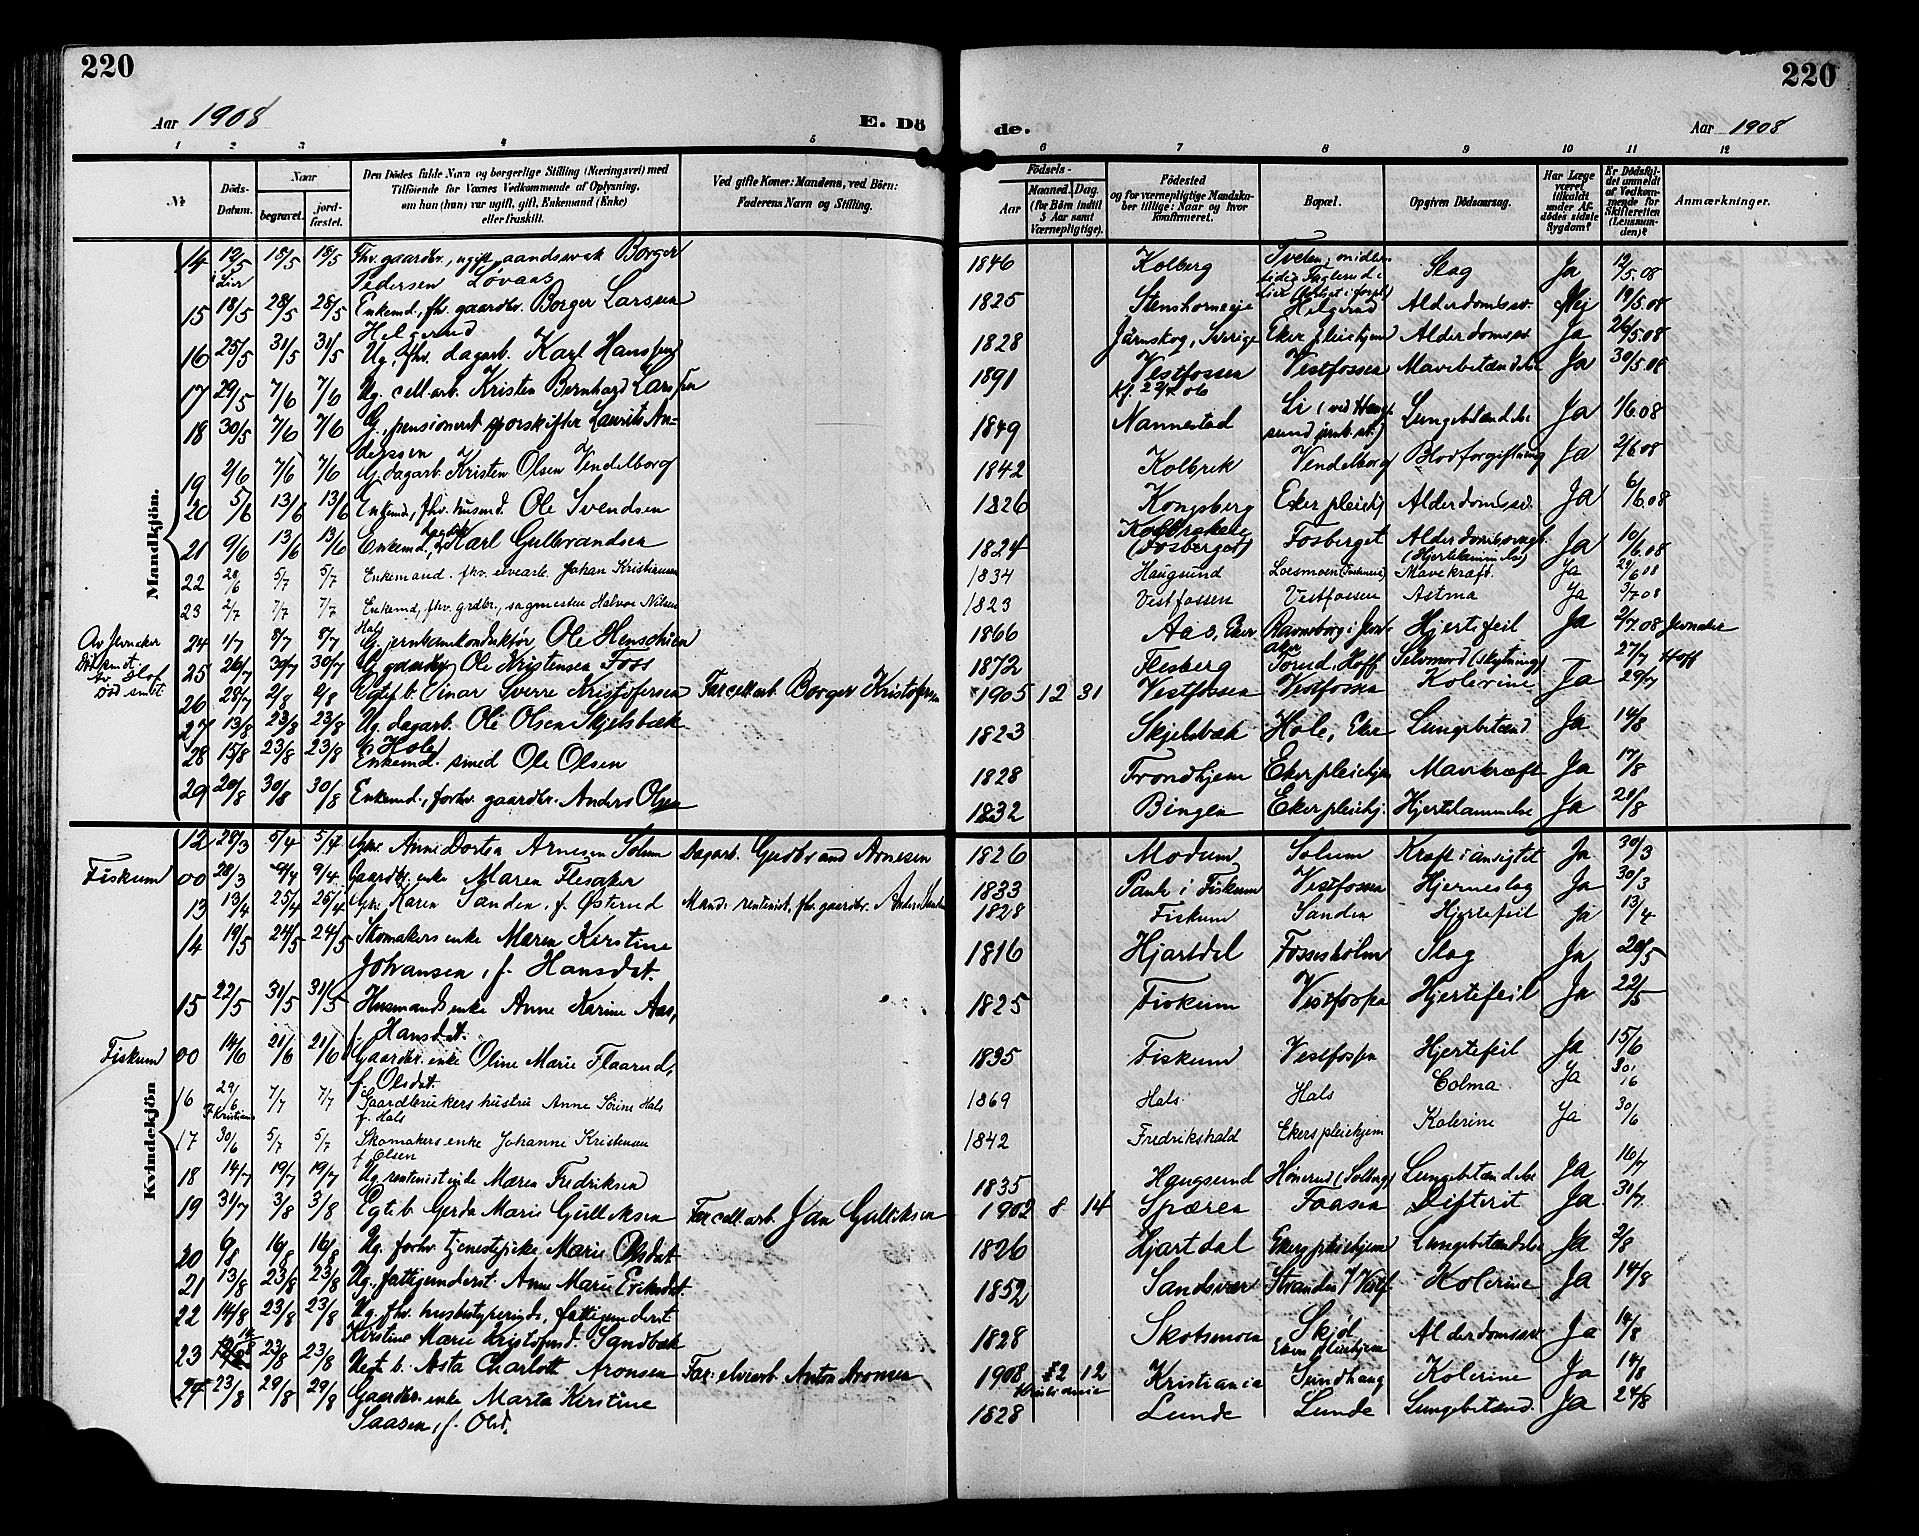 220
220
Aar 1908
E. Dö
de.
Aar 1908
1 2 3 4 5
6 7 8 9 10 11 12
№
Döds-Datum.
Naar
begravet.
jord-fæstet.
Den Dödes fulde Navn og borgerlige Stilling (Næringsvei) med
Tilföiende for Voxnes Vedkommende af Oplysning,
om hun (han) var ugift, gift, Enkemand (Enke)
eller fraskilt.
Ved gifte Koner: Mandens, ved Börn:
Faderens Navn og Stilling.
Födsels-
Aar
Maaned. Dag.
(for Börn indtil
5 Aar samt
Værnepligtige).
Födested
og for værnepligtige Mandska-
ber tillige: Naar og hvor
konfirmeret.
Bopæl.
Opgiven Dödsaarsag.
Har Læge
været
tilkaldt
under Af-
dödes sidste
Sygdom?
Er Dödsfal-
det anmeldt
af Vedkom-
mende for
Skifteretten
(Lensman-
den)?
Anmærkninger.
Mandkjön.
14 12/5 18/5 18/5 Fhv. gaardbr., ugift, aandssvak Borger Pedersen Løvaas 1846 Kolberg Slag Ja 12/5.08
15 18/5 28/5 28/5 Enkemd., fhv. gaardbr. Borger Larssen Helgerud 1825 Stenshorneeje Helgerud Alderdomssv. Nej 19/5.08
16 25/5 31/5 31/5 Ug. fhv. dagarb. Karl Hanssen 1828 Järnskog, Sverige Eker pleiehjem Alderdomssv. Ja 26/5.08
17 29/5 7/6 7/6 Ug. cell.arb. Kristen Bernhard Larssen 1891 Vestfossen Vestfossen Mavebetændelse Ja 30/5.08
18 30/5 7/6 7/6 G. pensioneret sporskifter Laurits Anderssen 1849 Nannestad Li (ved Haugsund jernb.st.) Lungebetændelse Ja 1/6.08
19 2/6 7/6 7/6 G. dagarb. Kristen Olsen Vendelborg 1842 Kolbrek Vendelborg Blodforgiftning Ja 2/6 08
20 5/6 13/6 13/6 Enkemd., fhv. husmd. Ole Svendsen 1826 Kongsberg Eker pleiehj. Alderdomssv. Ja 6/6.08
21 9/6 13/6 13/6 Enkemd., Karl Gulbrandsen 1824 (Fosberget) Fosberget Ja 10/6.08
22 28/6 5/7 5/7 Enkemand. fhv. elvearb. Johan Kristiansen 1834 Haugsund Mavekræft. Ja 29/6 08
23 2/7 7/7 7/7 Enkemd, fhv. grdbr., sagmester Halvor Nilsen Hals 1823 Vestfossen Vestfossen Astma Ja 3/7 08
24 1/7 8/7 8/7 G. jernbanekonduktør Ole Henschien 1866 Aas, Eker Hjertefeil Ja 2/7 08 Jevnaker
25 26/7 30/7 30/7 G. gaardbr. Ole Kristensen Foss 1872 Flesberg Torud, Hoff Selvmord (skytning) 27/7 Hoff
26 28/7 2/8 2/8 Egtef. b. Einar Sverre Kristofersen Far: cell.arb. Borger Kristofersen 1905 12 31 Vestfossen Vestfossen Kolerine Ja 29/7
27 13/8 23/8 23/8 Ug. dagarb. Ole Olsen Skjelsbæk 1823 Skjelsbæk Hole, Eker Lungebetænd. Ja 14/8
28 15/8 23/8 23/8 Enkemd. smed Ole Olsen 1828 Trondhjem Eker pleiehjem Mavekræft Ja 17/8
29 20/8 30/8 30/8 Enkemd., forhv. gaardbr. Anders Olsen 1832 Bingen Eker pleiehj. Hjertelammelse Ja 21/8
Kvindekjön
12 28/3 5/4 5/4 Gke. Anne Dortea Arnesen Solum Dagarb. Gudbrand Arnesen 1826 Modum Solum Kræft i ansigtet Ja 30/3
Fiskum 00 28/3 9/4 9/4 Gaardbr. enke Maren Flesaker 1833 Fiskum Vestfossen Hjerneslag Ja 30/3
13 13/4 25/4 25/4 Gke. Karen Sanden, f. Østerud Mand: rentenist, fhv. gaardbr. Anders Sanden 1828 Fiskum Sanden Hjertefeil Ja 13/4
14 19/5 24/5 24/5 Skomakers enke Maren Kirstine Johansen, f. Hansdat. 1816 Hjartdal Fossesholm Slag Ja 20/5
15 22/5 31/5 31/5 Husmands enke Anne Karine Aas, f. Hansdat. 1825 Fiskum Vestfossen Hjertefeil Ja 22/5
Fiskum 00 14/6 21/6 21/6 Gaardbr. enke Oline Marie Flaarud, f. Olsdat. 1835 Fiskum Vestfossen Hjertefeil Ja 15/6
16 29/6 7/7 7/7 Gaardbrukers hustru Anne Sørine Hals f. Hals 1869 Hals Hals Ja 30/6
17 30/6 5/7 5/7 Skomakers enke Johanne Kristensen f. Olsen 1842 Fredrikshald Ekers pleiehjem Kolerine Ja 30/6
18 14/7 19/7 19/7 Ug. rentenistinde Maren Fredriksen 1835 Haugsund Hønerud (Solberg) Lungebetændelse Ja 16/7
19 31/7 3/8 3/8 Egte b. Gerda Marie Gulliksen Far: cell.arb. Jan Gulliksen 1902 8 14 Spæren Faasen Difterit Ja 31/7
20 9/8 16/8 16/8 Ug. forhv. tjenestepike Marie Olsdat. 1826 Hjartdal Ekers pleiehjem Lungebetændelse Ja 2/8
21 13/8 23/8 23/8 Ug., fattigunderst. Anne Marie Eriksdat. 1852 Sandsvær Stranden / Vestf. Kolerine Ja 14/8
22 14/8 23/8 23/8 Ug. fhv. husbestyrerinde, fattigunderst. Kirstine Marie Kristofersd. Sandbæk 1828 Skotsmoen Skjøl Eker pleiehjem Alderdomssv. Ja 14/8
23 23/8 23/8 Uegt. b. Asta Charlott Aronsen Far: elvearb. Anton Aronsen 1908 2 12 Kristiania Sundhaug Kolerine Ja 14/8
24 23/8 29/8 29/8 Gaardbr. enke Marta Kirstine Saasen, f. Olsd. 1828 Lunde Lunde Lungebetænd. Ja 24/8